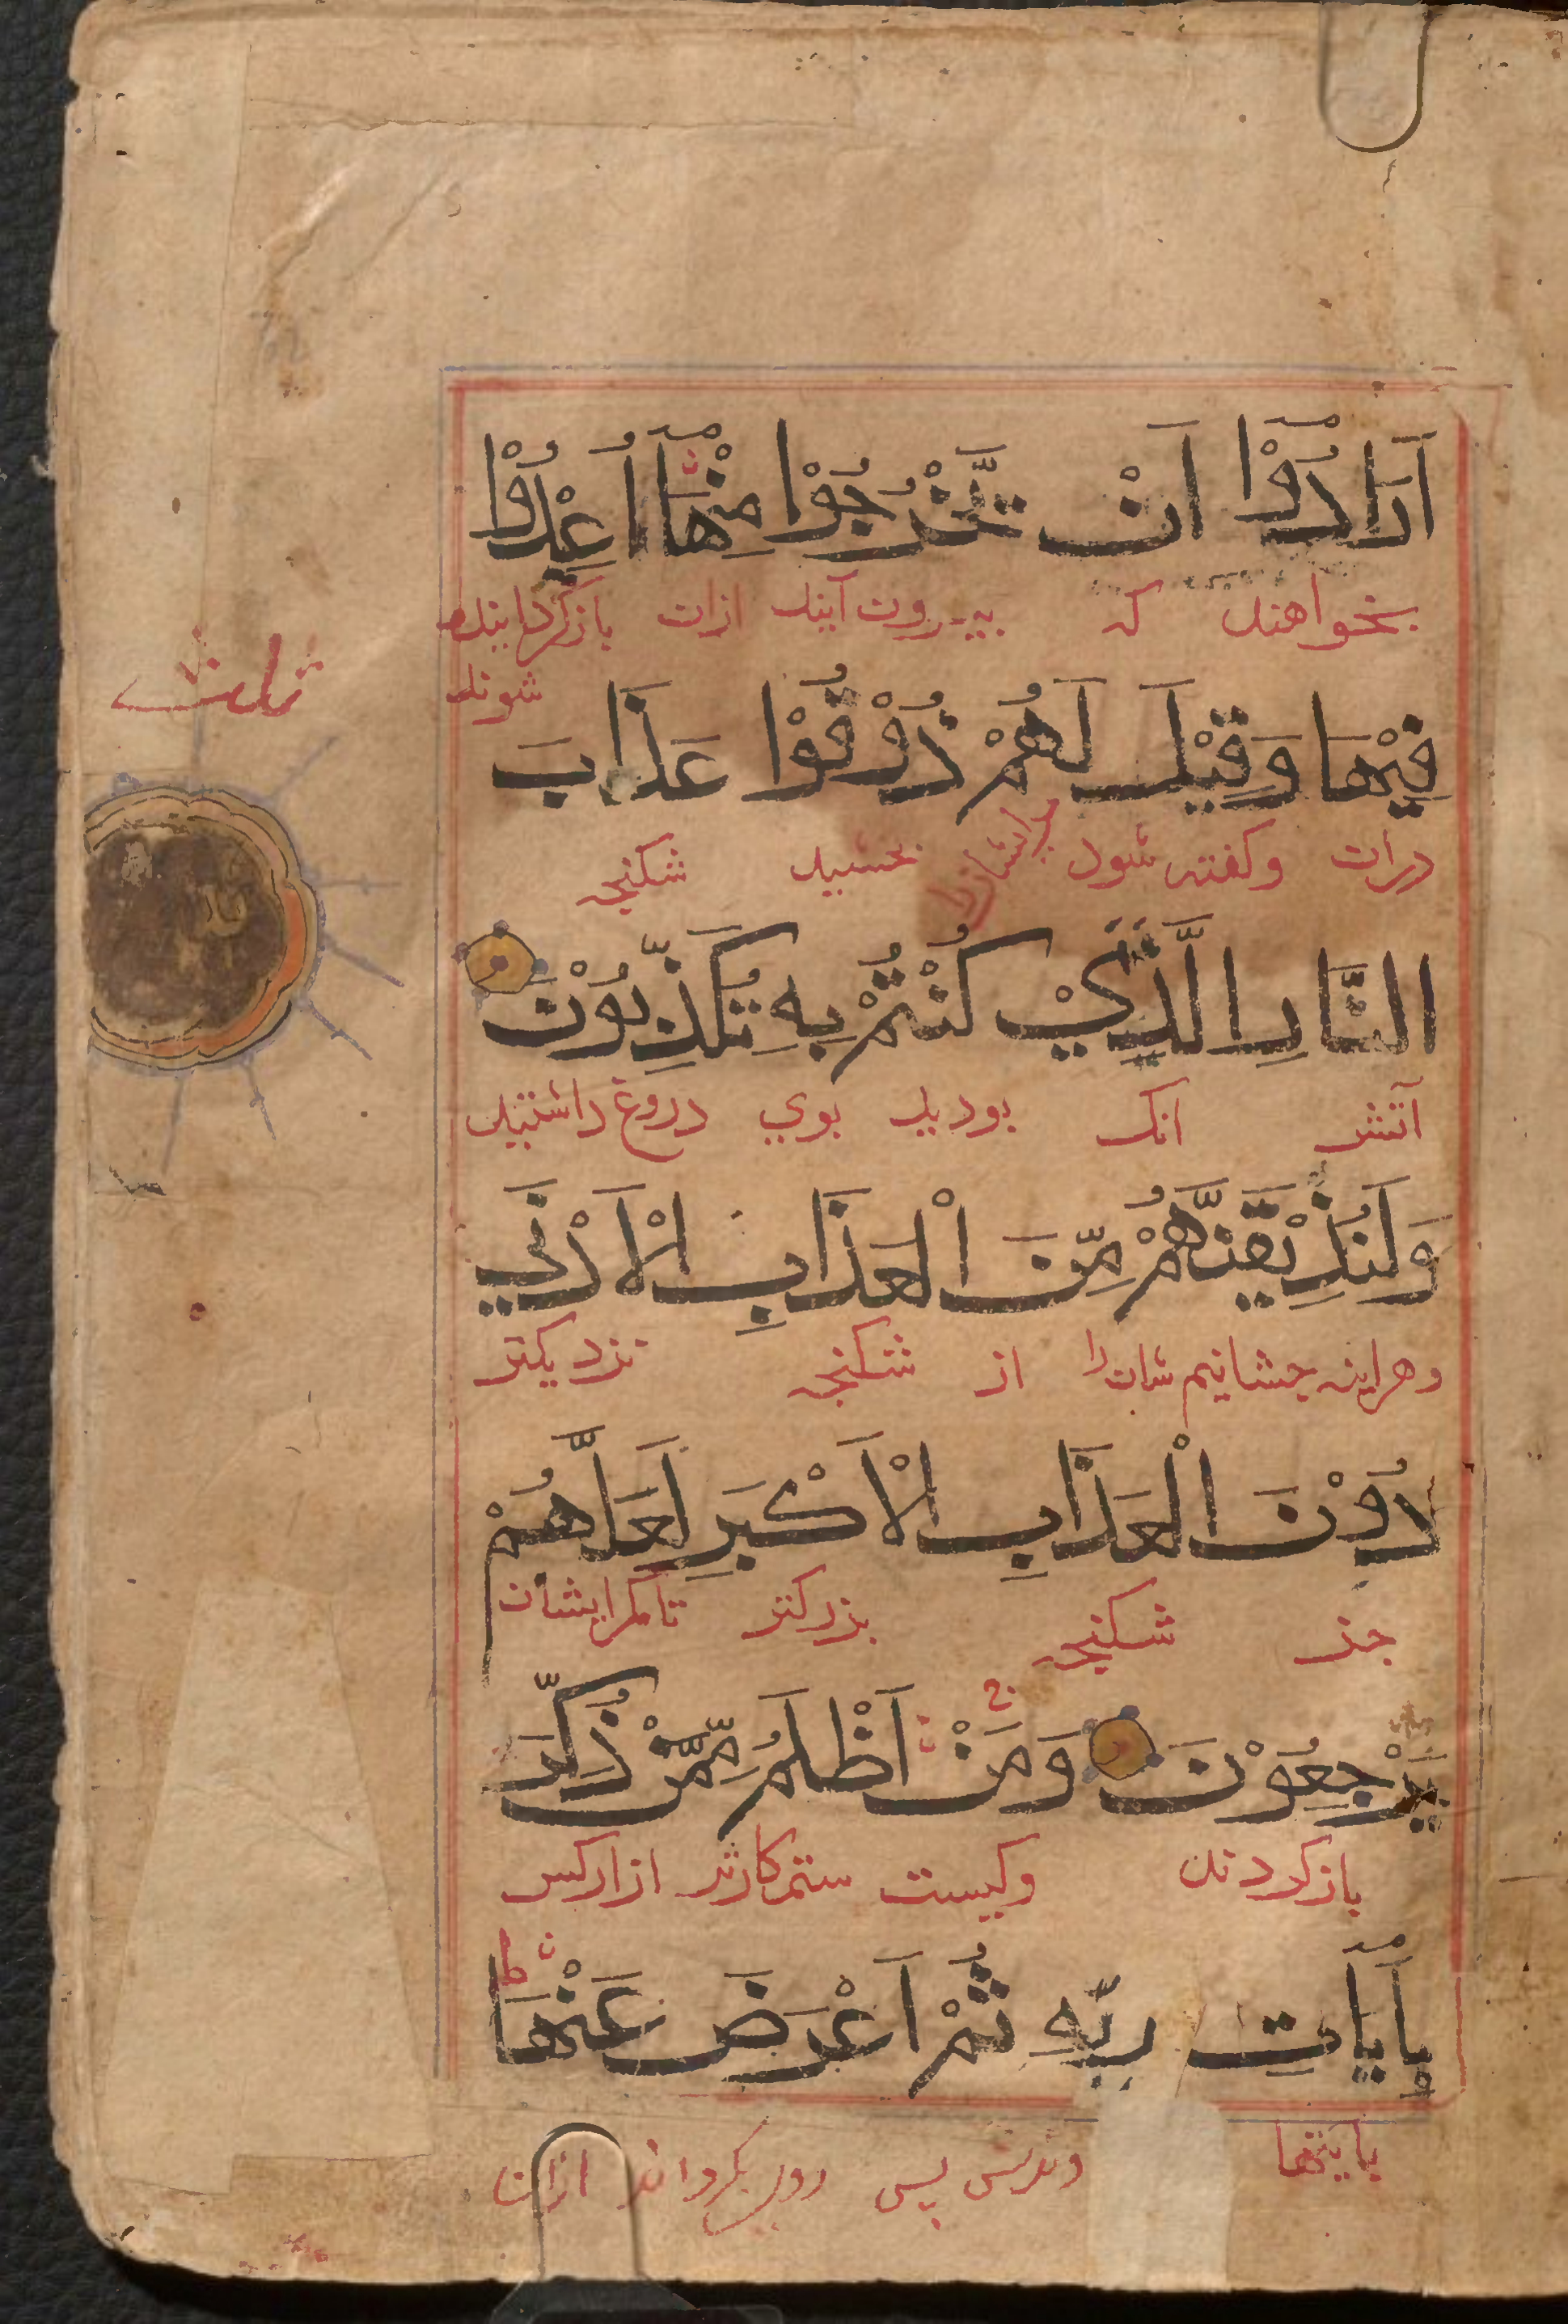 اَرَادُوْٓا اَنْ تَّخْرُجُوْا مِنْهَآ اُعِيْدُوْا
بخواهند که بیرون آیند ازان بازگردانیده
شوند
ثلث
فِيْهَا وَقِيْلَ لَهُمْ ذُوْقُوْا عَذَابَ
دران وکفته شود بچشید شکنجه
النَّارِ الَّذِيْ كُنْتُمْ بِهِ تُكَذِّبُوْنَ
آتش انک بودید بوی دروغ داشتید
وَلَنُذِيْقَنَّهُمْ مِّنَ الْعَذَابِ الْاَدْنَي
وهراینه چشانیم شان را از شکنجه نزدیکتر
دُوْنَ الْعَذَابِ الْاَكْبَرِ لَعَلَّهُمْ
جز شکنجه بزرکتر تامکر ایشان
يَرْجِعُوْنَ وَمَنْ اَظْلَمُ مِمَّنْ ذُكِّرَ
بازکردند وکیست ستمکارتر ازانکس
بِاٰيَاتِ رَبِّهِ ثُمَّ اَعْرَضَ عَنْهَا
بایتها پس روی بکرداند ازان